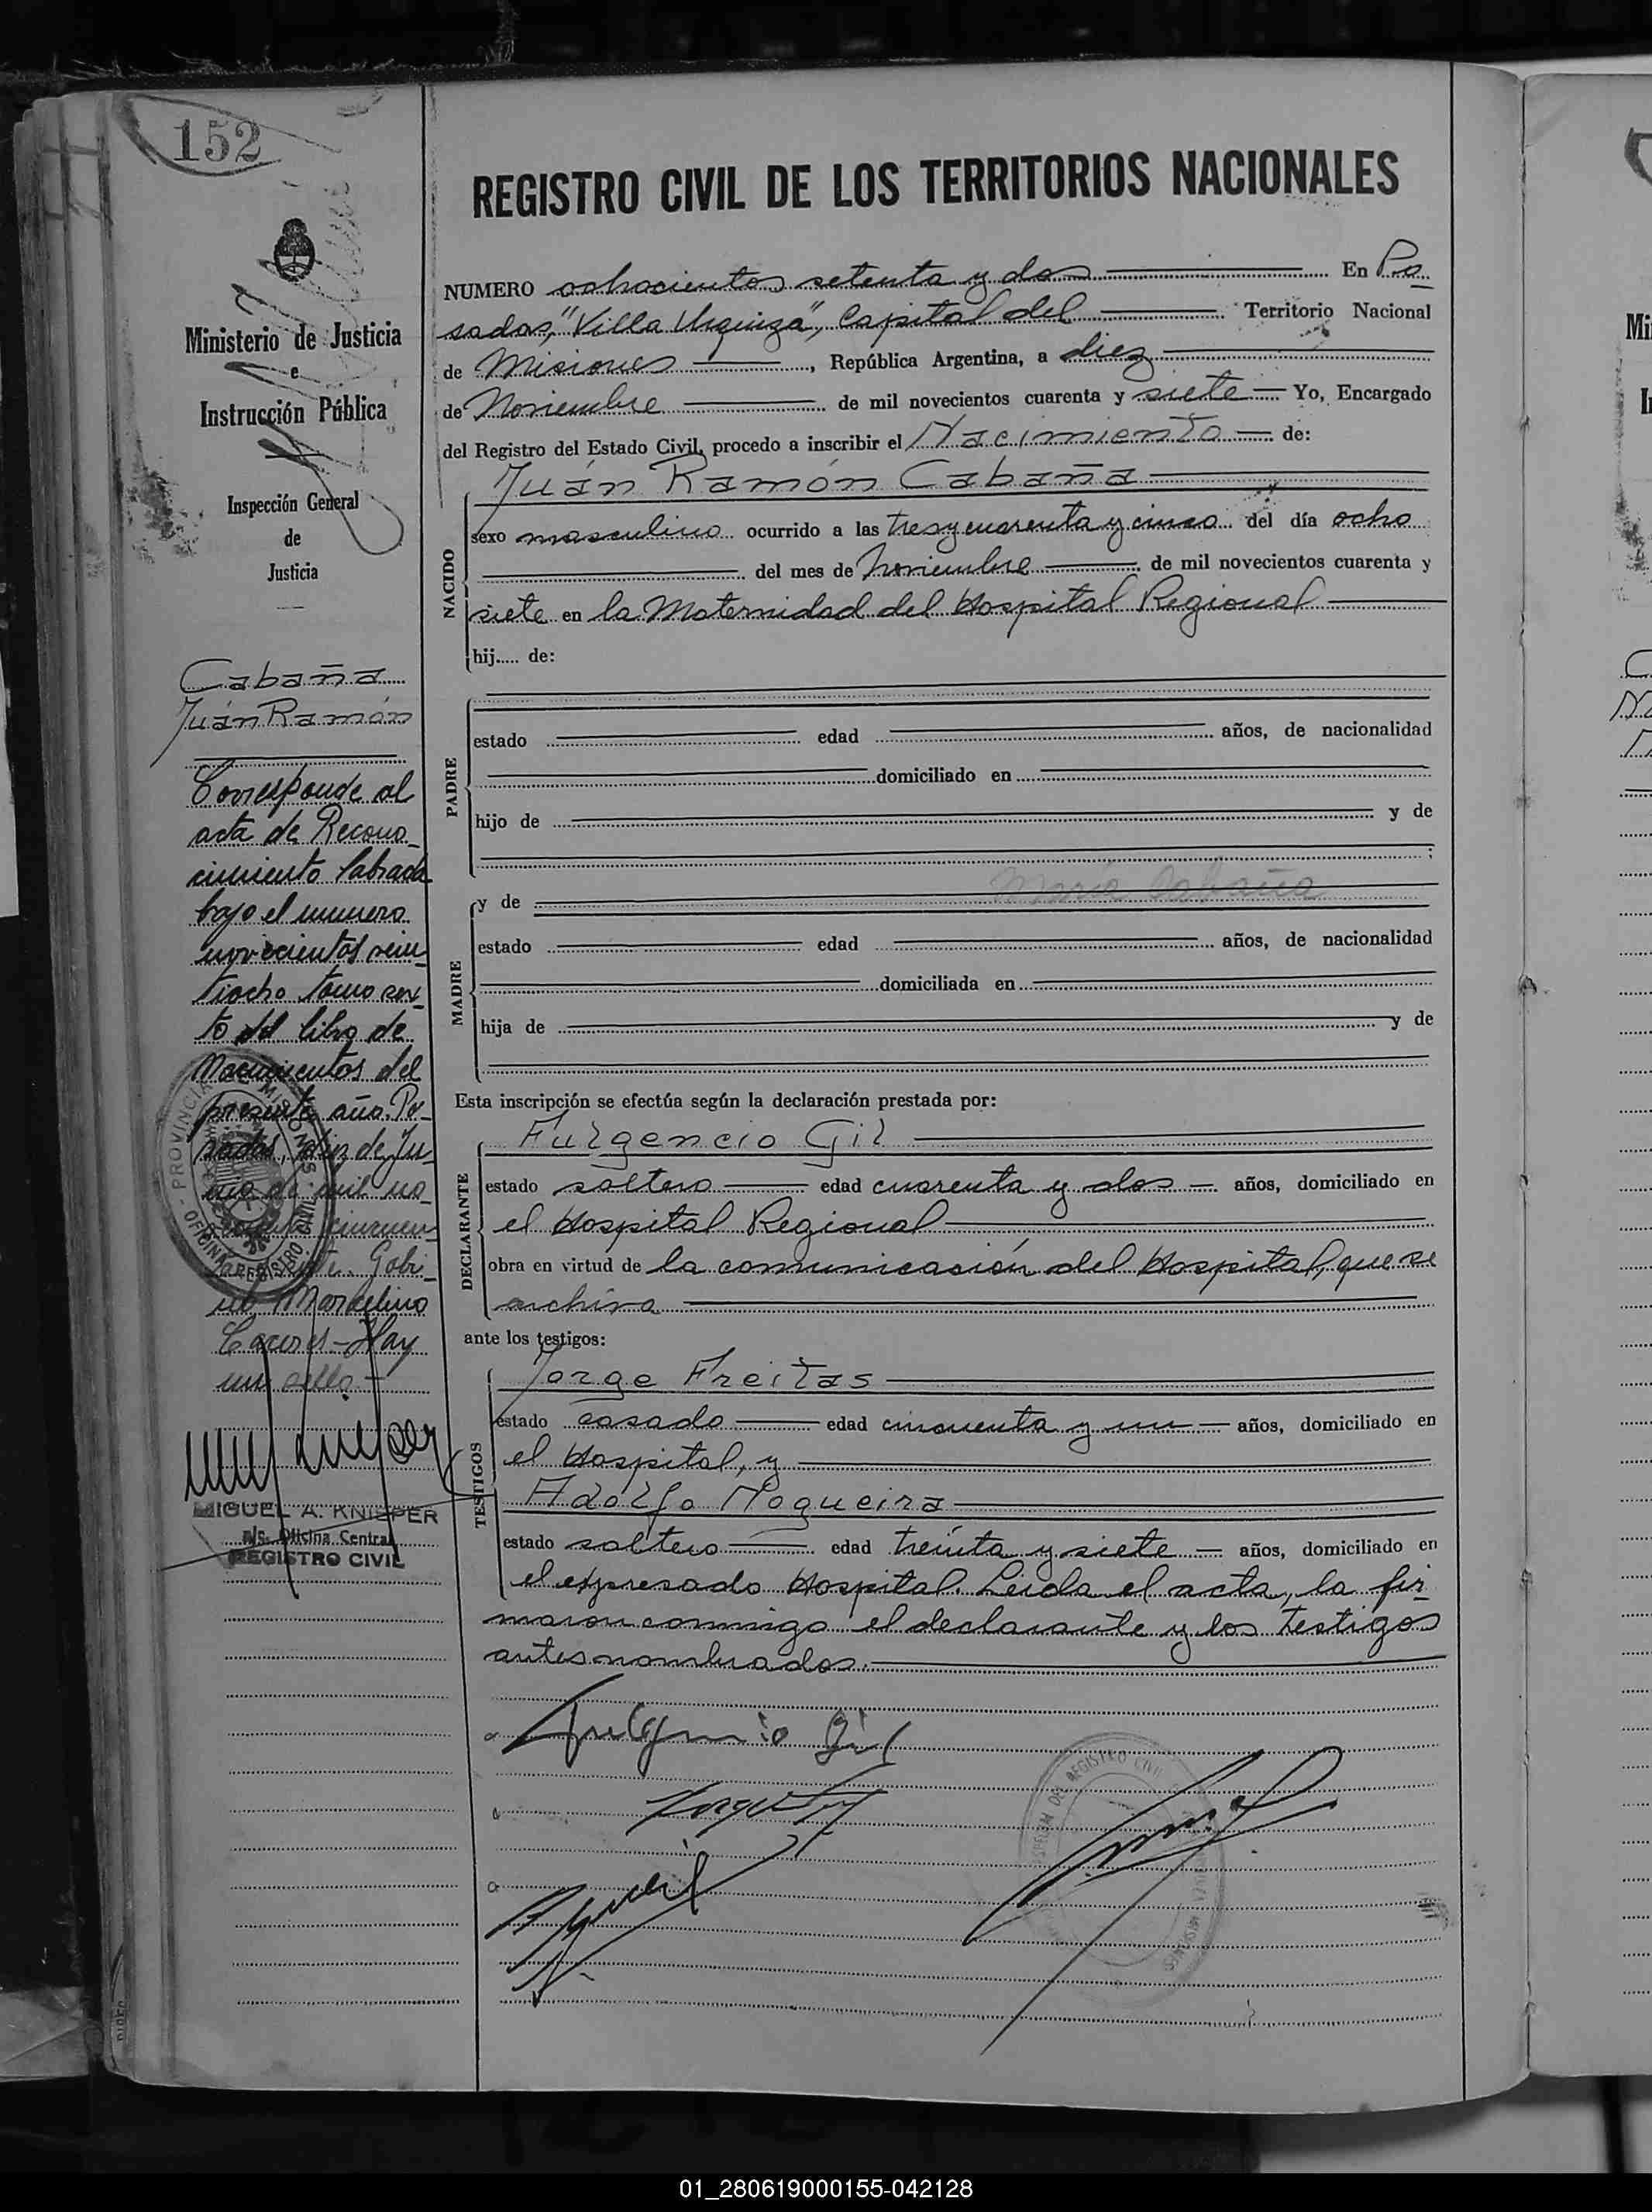 152
Ministerio de Justicia
e
Instrucción Pública
Inspección General
de
Justicia
Cabaña
Juán Ramón
Corresponde al
acta de Recono-
cimiento labrada
bajo el numero
novecientos vein-
tiocho tomo sex-
to del libro de
Nacimientos del
presente año. Po-
sadas, diez de Ju-
de mil no-
cincuen-
Gobi-
Marcelino
Caceres - Hay
un sello.-
MIGUEL A. KNISPER
a/c. Oficina Central
REGISTRO CIVIL
PROVINCIA DE MISIONES
OFICINA REGISTRO CIVIL
REGISTRO CIVIL DE LOS TERRITORIOS NACIONALES
NUMERO ochocientos setenta y dos En Po-
sadas, "Villa Urquiza", Capital del Territorio Nacional
de Misiones, República Argentina, a diez
de Noviembre de mil novecientos cuarenta y siete Yo, Encargado
del Registro del Estado Civil, procedo a inscribir el Nacimiento de:
NACIDO
Juán Ramón Cabaña
sexo masculino ocurrido a las tres y cuarenta y cinco del día ocho
del mes de Noviembre de mil novecientos cuarenta y
siete en la Maternidad del Hospital Regional
hij..... de:
PADRE
estado edad años, de nacionalidad
domiciliado en
hijo de y de
;
María Cabaña
MADRE
y de
estado edad años, de nacionalidad
domiciliada en
hija de y de
Esta inscripción se efectúa según la declaración prestada por:
DECLARANTE
Fulgencio Gil
estado soltero edad cuarenta y dos años, domiciliado en
el Hospital Regional
obra en virtud de la comunicación del Hospital, que se
archiva
ante los testigos:
TESTIGOS
Jorge Freitas
estado casado edad cincuenta y un años, domiciliado en
el Hospital, y
Adolfo Nogueira
estado soltero edad treinta y siete años, domiciliado en
el expresado Hospital. Leída el acta, la fir-
maron conmigo el declarante y los testigos
antes nombrados.
Fulgencio Gil
REGISTRO CIVIL
01_280619000155-042128